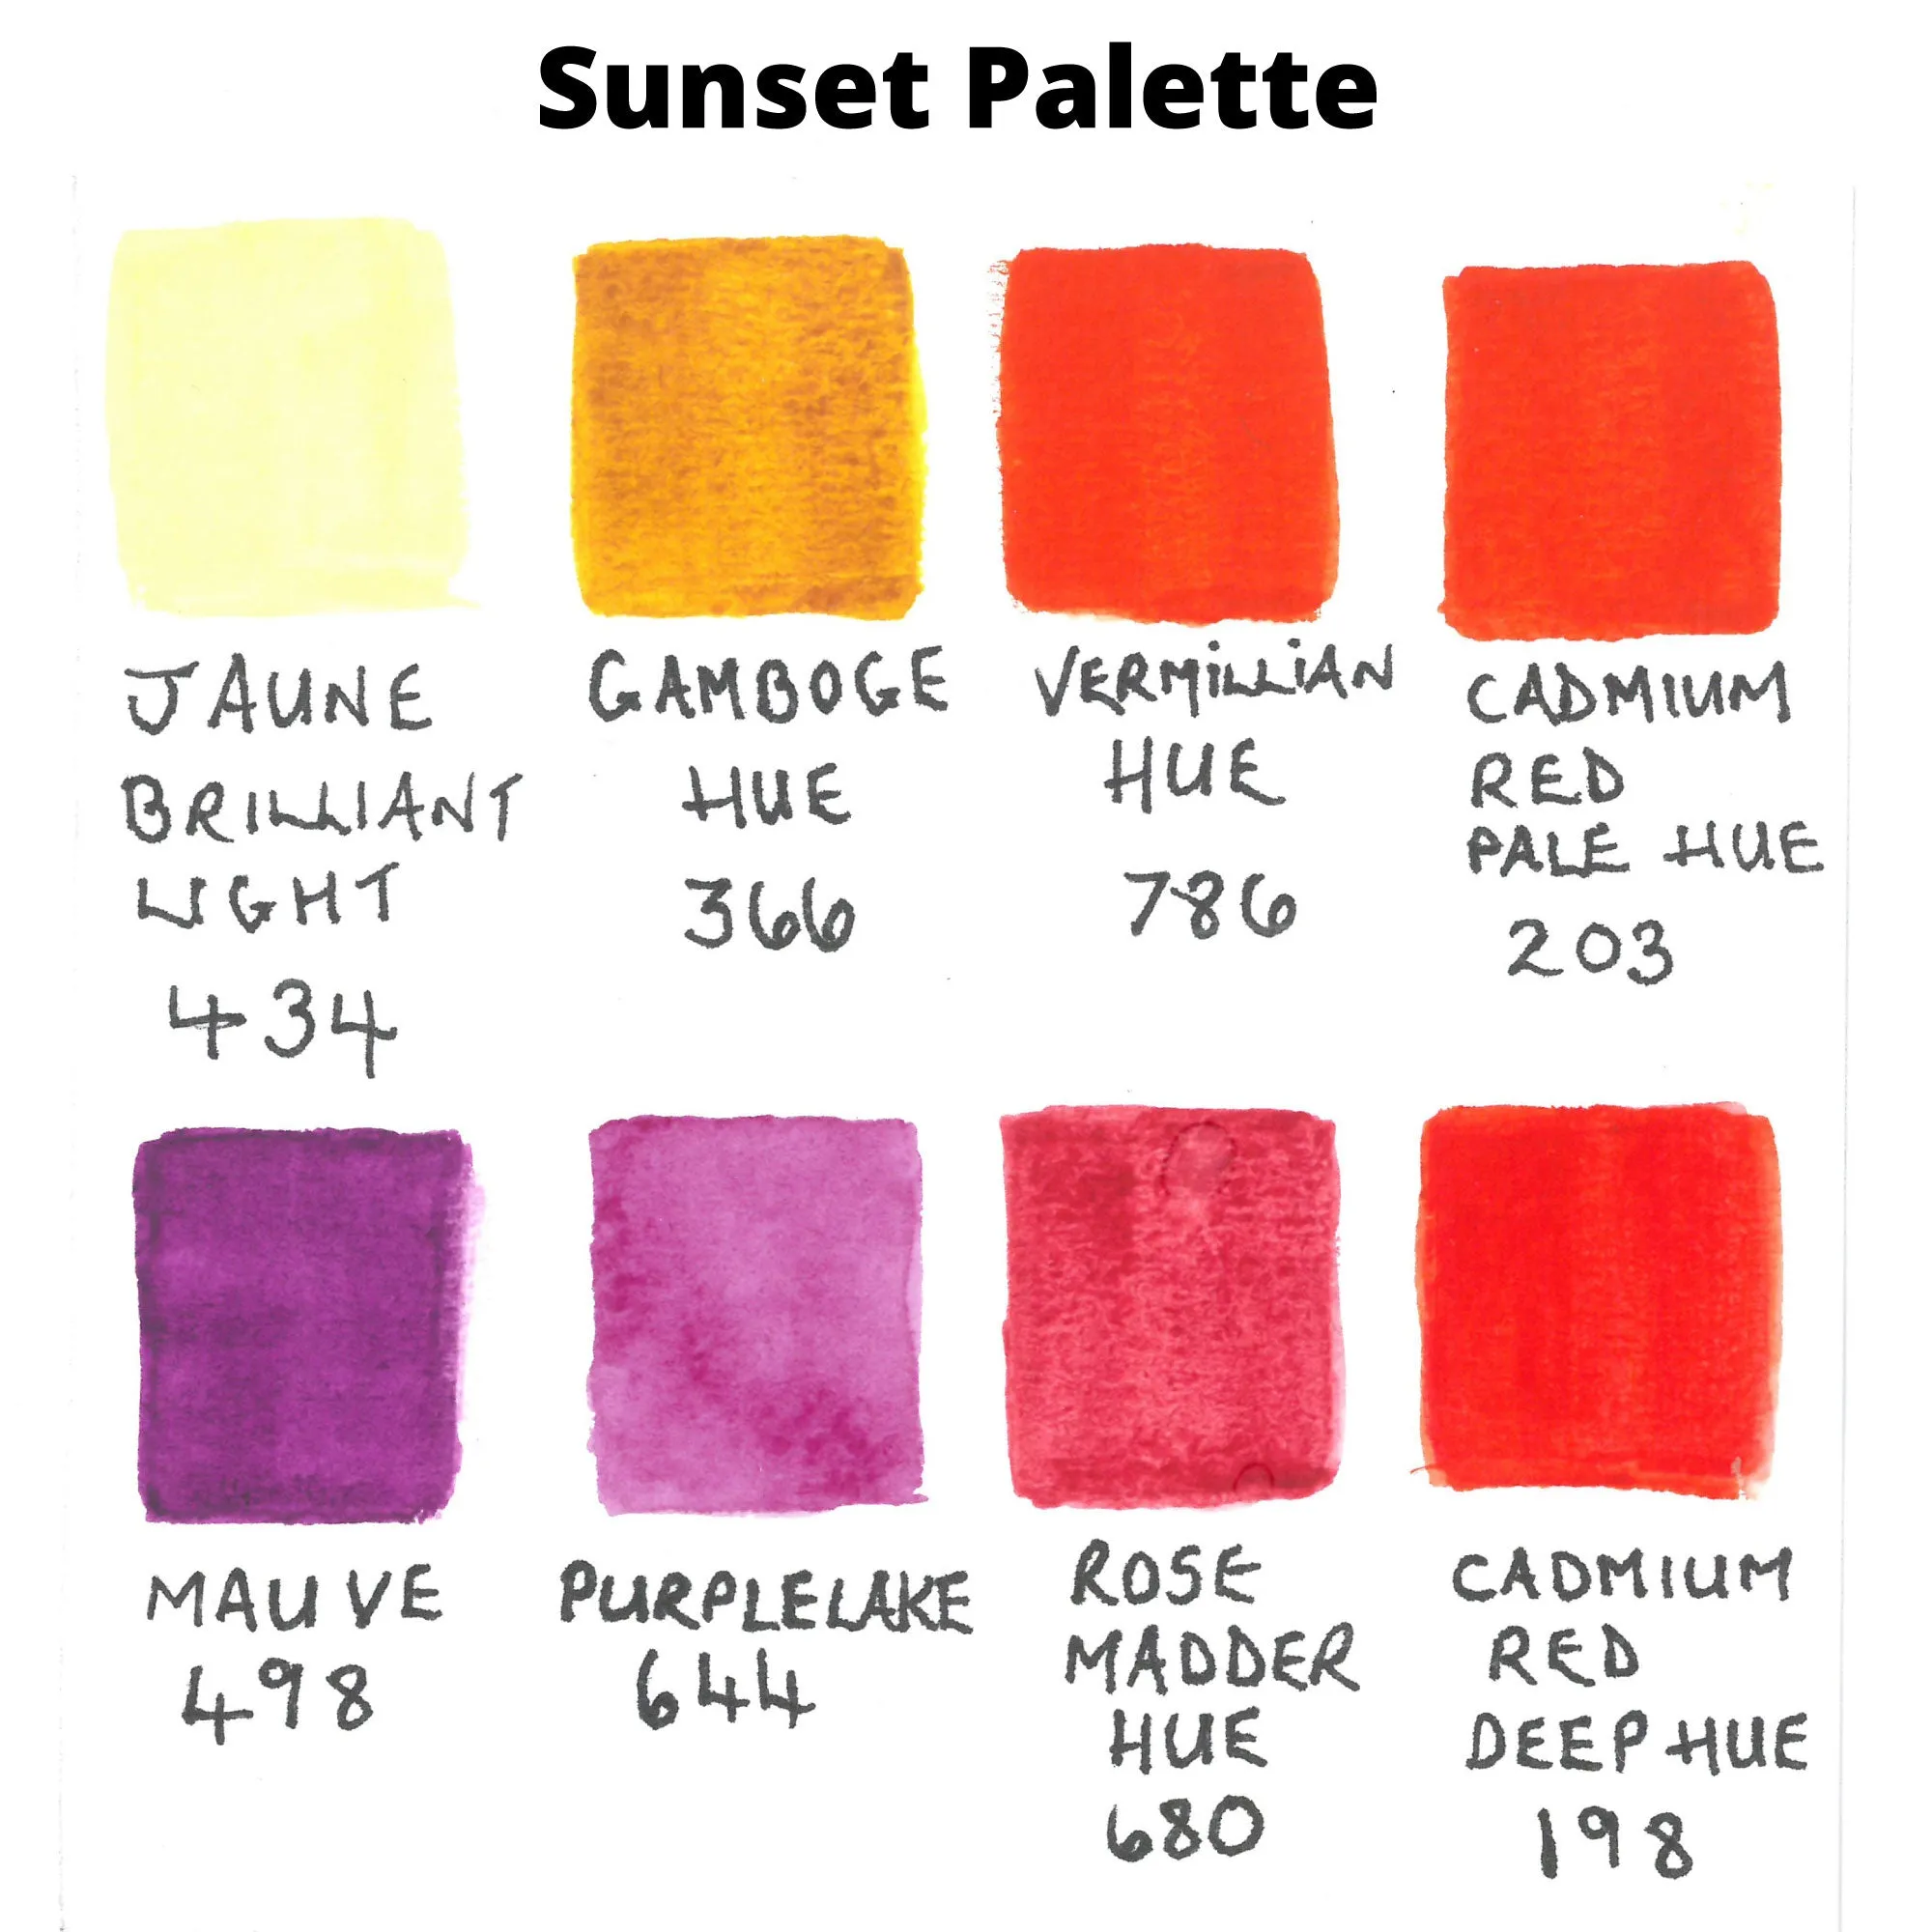 Sunset Palette
JAUNE
BRILLIANT
LIGHT
434
GAMBOGE
HUE
366
VERMiLLiAN
HUE
786
CADMIUM
RED
PALE HUE
203
MAUVE
498
PURPLELAKE
644
ROSE
MADDER
HUE
680
CADMIUM
RED
DEEP HUE
198